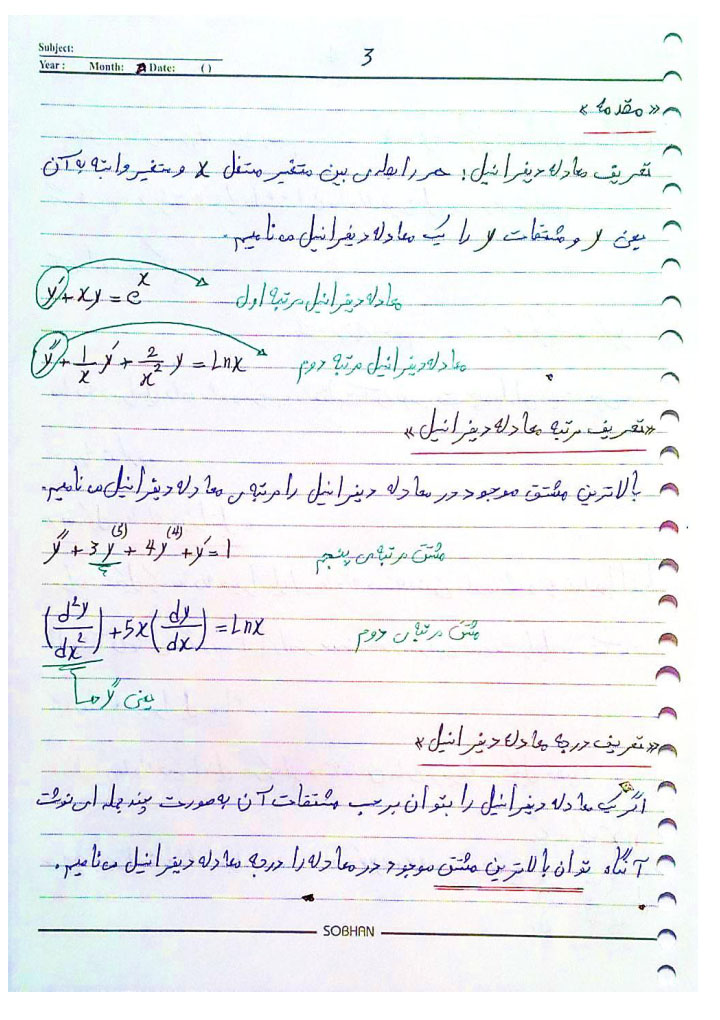 Subject:
Year : Month: Date: ( )
3
« مقدمه »
تعریف معادله دیفرانیل : هر رابطه‌ی بین متغیر مستقل x و متغیر وابسته به آن
یعنی y و مشتقات y را یک معادله دیفرانیل می نامیم .
y′ + xy = e^x معادله دیفرانیل مرتبه اول
y″ + 1/x y′ + 2/x² y = Lnx معادله دیفرانیل مرتبه دوم
« تعریف مرتبه معادله دیفرانیل »
بالاترین مشتق موجود در معادله دیفرانیل را مرتبه‌ی معادله دیفرانیل می نامیم.
y″ + 3y^(5) + 4y^(4) + y′ = 1 مشتق مرتبه‌ی پنجم
(d²y/dx²) + 5x(dy/dx) = Lnx مشتق مرتبه‌ی دوم
یعنی y″
« تعریف درجه معادله دیفرانیل »
اگر یک معادله دیفرانیل را بتوان بر حسب مشتقات آن به صورت چند جمله ای نوشت
آنگاه توان بالاترین مشتق موجود در معادله را درجه معادله دیفرانیل می نامیم .
SOBHAN